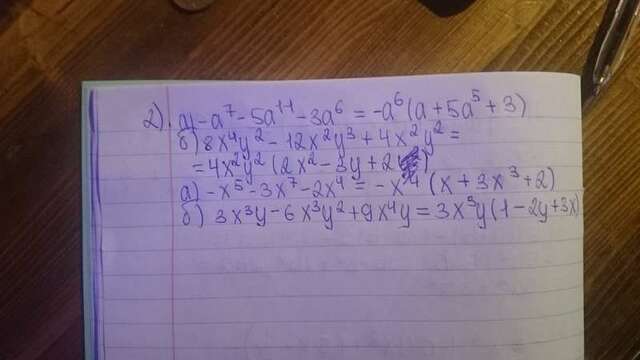 2). а) -a⁷ - 5a¹¹ - 3a⁶ = -a⁶(a + 5a⁵ + 3)
б) 8x⁴y² - 12x²y³ + 4x²y² =
= 4x²y² (2x² - 3y + 2)
а) -x⁵ - 3x⁷ - 2x⁴ = -x⁴ (x + 3x³ + 2)
б) 3x³y - 6x³y² + 9x⁴y = 3x³y (1 - 2y + 3x)